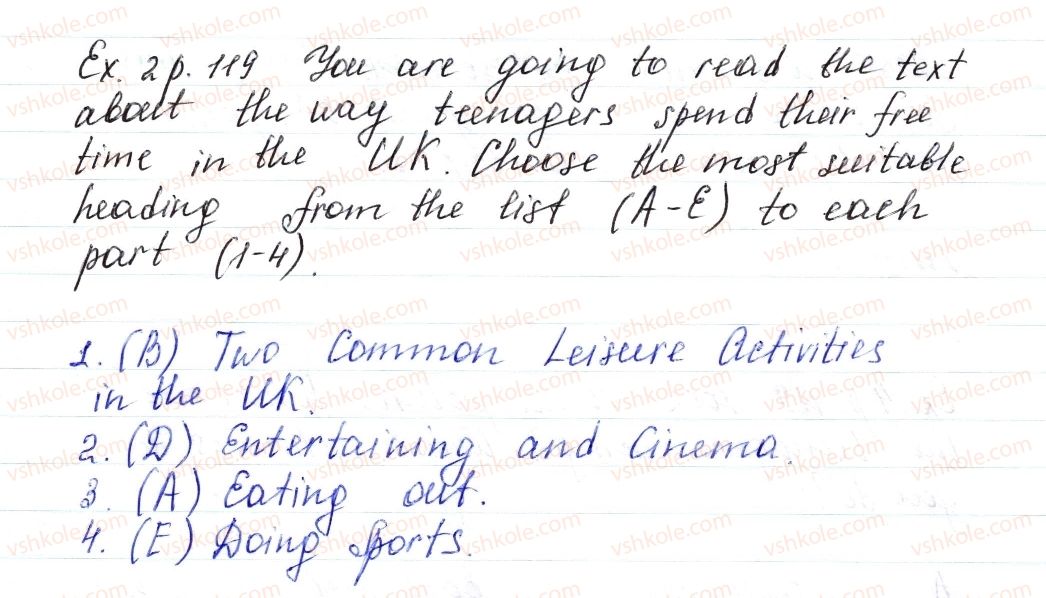 Ex. 2 p. 119 You are going to read the text
about the way teenagers spend their free
time in the UK. Choose the most suitable
heading from the list (A-E) to each
part (1-4).
1. (B) Two Common Leisure Activities
in the UK.
2. (D) Entertaining and Cinema.
3. (A) Eating out.
4. (E) Doing Sports.
vshkole.com